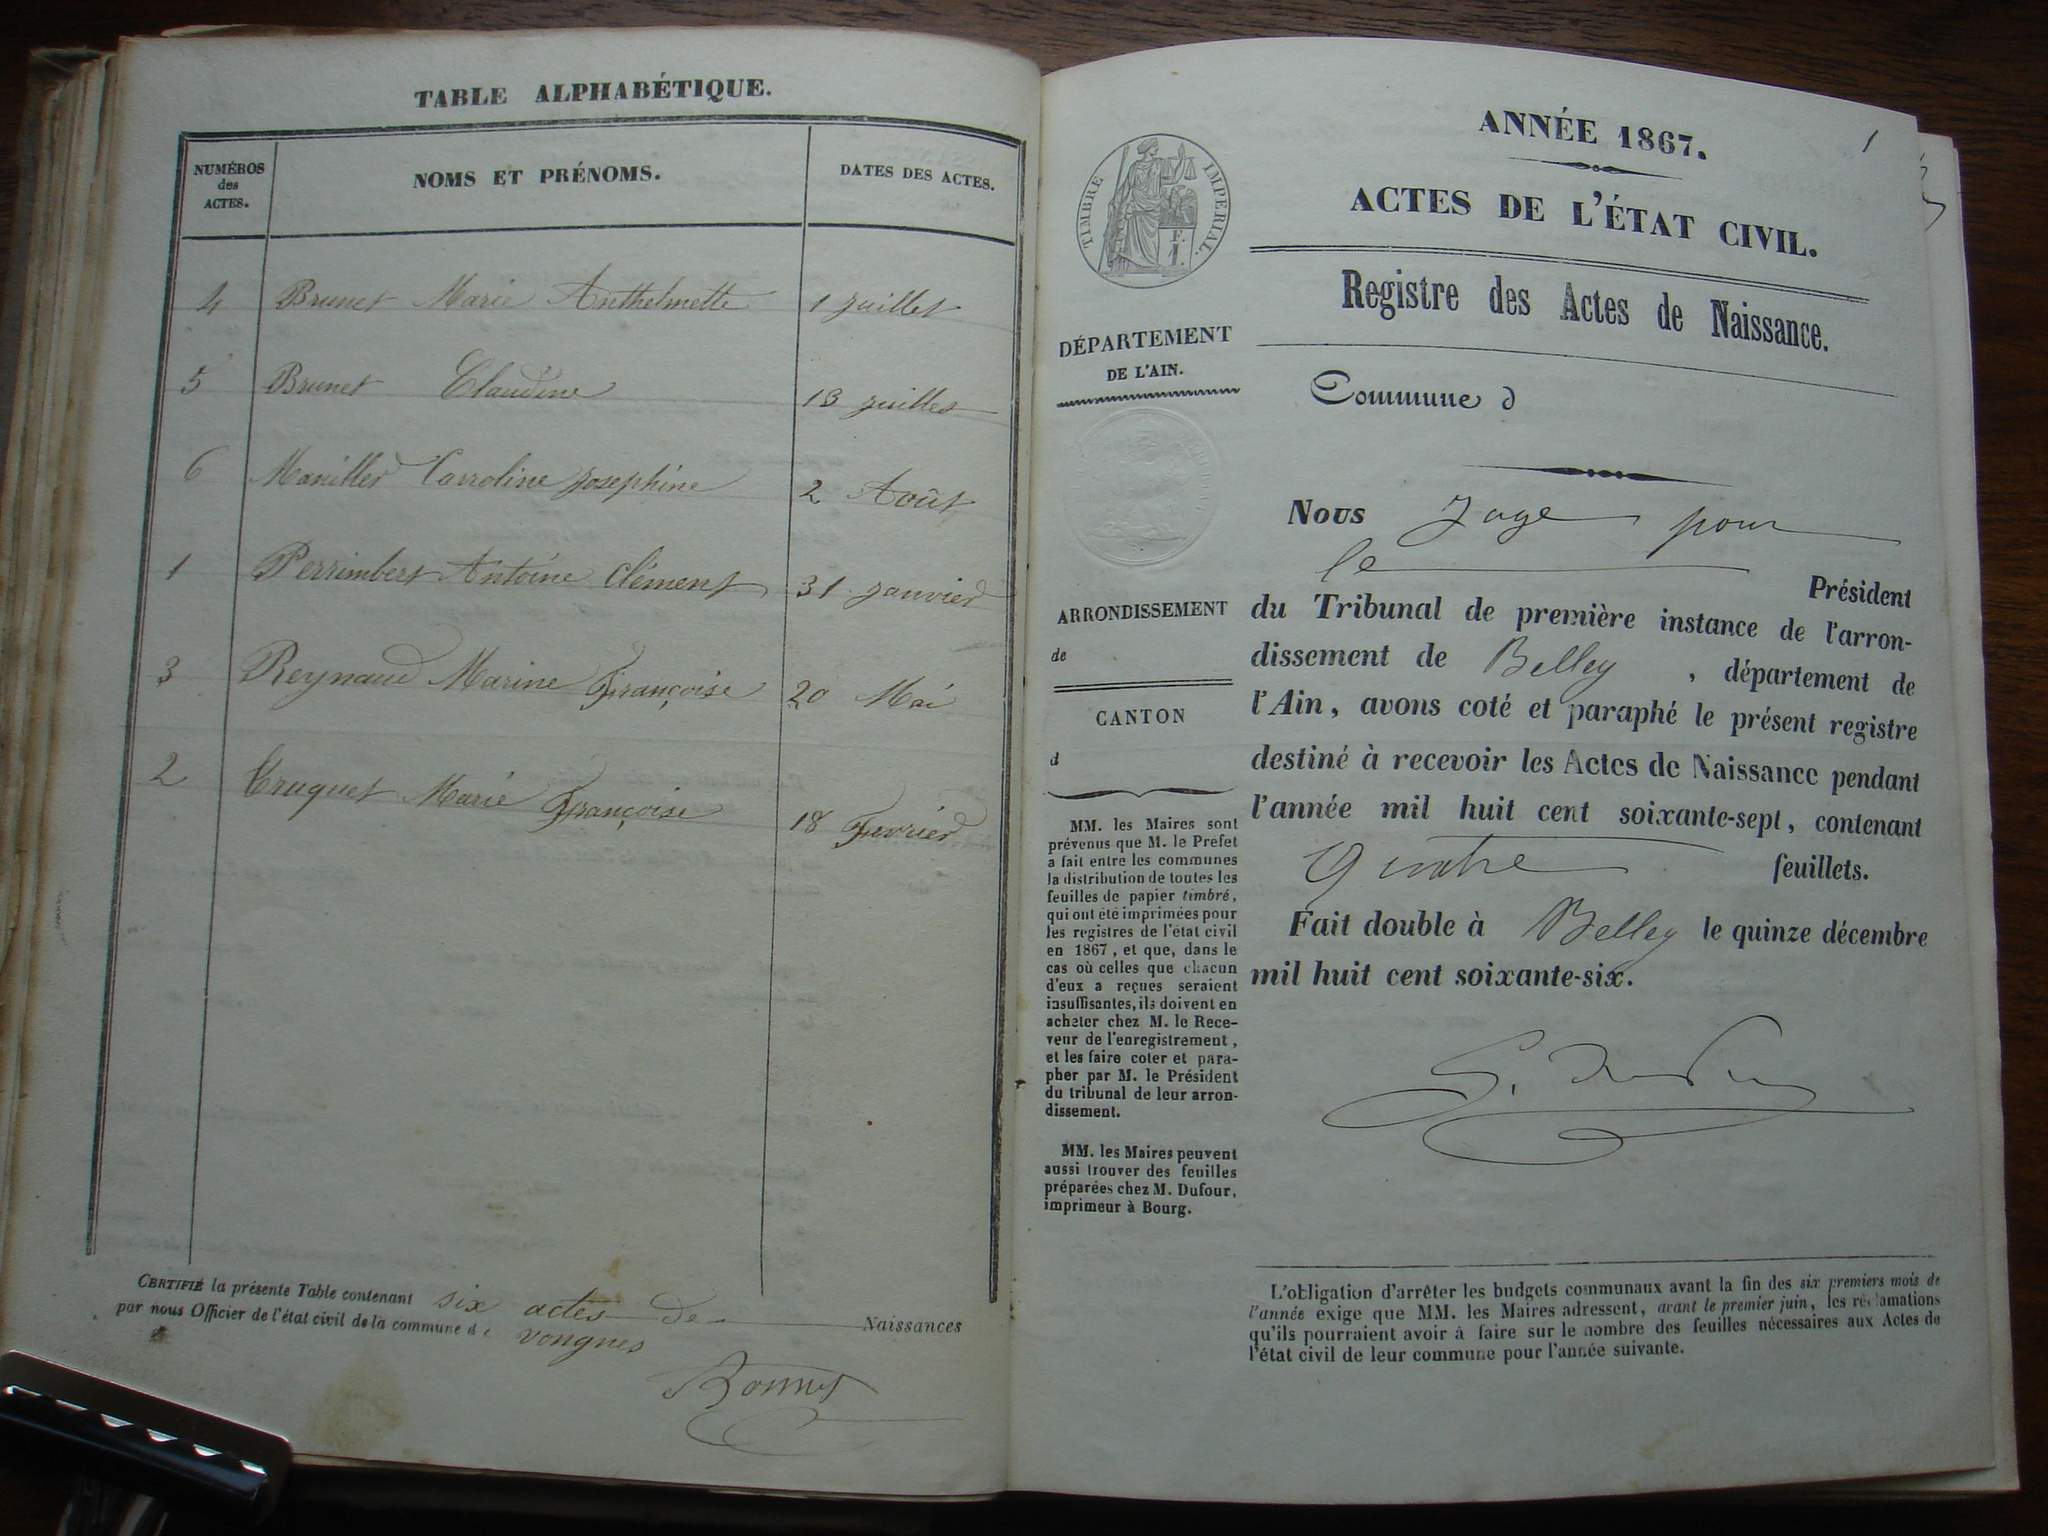 TABLE ALPHABÉTIQUE.
NUMÉROS des ACTES.
NOMS ET PRÉNOMS.
DATES DES ACTES.
4 Brunet Marie Anthelmette 1 juillet
5 Brunet Claudine 13 juillet
6 Caroline Josephine 2 Août
1 Antoine Clément 31 janvier
3 Reynaud Marine Françoise 20 Mai
2 Truquet Marie Françoise 18 Fevrier
CERTIFIÉ la présente Table contenant six actes de Naissances
par nous Officier de l'état civil de la commune de vongnes
Bonnet
1
ANNÉE 1867.
ACTES DE L'ÉTAT CIVIL.
Registre des Actes de Naissance.
TIMBRE IMPÉRIAL.
DÉPARTEMENT
DE L'AIN.
ARRONDISSEMENT
de
CANTON
d
MM. les Maires sont
prévenus que M. le Préfet
a fait entre les communes
la distribution de toutes les
feuilles de papier timbré,
qui ont été imprimées pour
les registres de l'état civil
en 1867, et que, dans le
cas où celles que chacun
d'eux a reçues seraient
insuffisantes, ils doivent en
acheter chez M. le Rece-
veur de l'enregistrement,
et les faire coter et para-
pher par M. le Président
du tribunal de leur arron-
dissement.
MM. les Maires peuvent
aussi trouver des feuilles
préparées chez M. Dufour,
imprimeur à Bourg.
Commune d
Nous Juge pour
le Président
du Tribunal de première instance de l'arron-
dissement de Belley, département de
l'Ain, avons coté et paraphé le présent registre
destiné à recevoir les Actes de Naissance pendant
l'année mil huit cent soixante-sept, contenant
quatre feuillets.
Fait double à Belley le quinze décembre
mil huit cent soixante-six.
L'obligation d'arrêter les budgets communaux avant la fin des six premiers mois de
l'année exige que MM. les Maires adressent, avant le premier juin, les réclamations
qu'ils pourraient avoir à faire sur le nombre des feuilles nécessaires aux Actes de
l'état civil de leur commune pour l'année suivante.